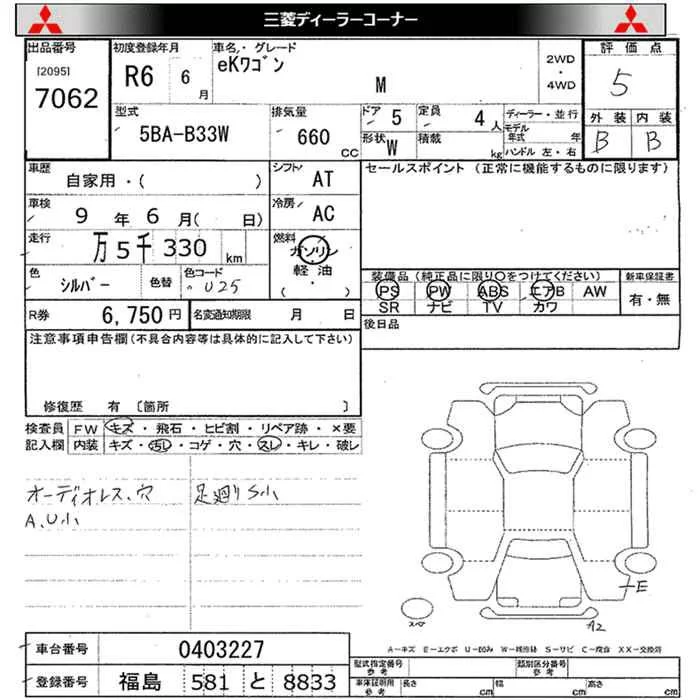 三菱ディーラーコーナー
出品番号 初度登録年月 車名・グレード 2WD・4WD 評価点
[2095] 7062 R6 6月 eKワゴン M 5
型式 排気量 ドア 5 定員 4人 ディーラー・並行 外装 内装
5BA-B33W 660CC 形状 W 積載 kg モデル年式 年 B B
ハンドル 左・右
車歴 シフト セールスポイント (正常に機能するものに限ります)
自家用・( ) AT
車検 9年6月( 日) 冷房 AC
走行 万5千330km 燃料 ガソリン
軽油
( ・ )
色 シルバー 色替 色コード U25
装備品 (純正品に限り○をつけてください) 新車保証書
PS PW ABS エアB AW 有・無
SR ナビ TV カワ
R券 6,750円 名変通知期限 月 日 後日品
注意事項申告欄(不具合内容等は具体的に記入して下さい)
修復歴 有 〔箇所 〕
検査員 FW キズ・飛石・ヒビ割・リペア跡・×要
記入欄 内装 キズ・汚レ・コゲ・穴・スレ・キレ・破レ
オーディオレス、穴 足廻りS小
A、U小
E
スペア
A2
A-キズ E-エクボ U-凹み W-補修跡 S-サビ C-腐食 XX-交換済
車台番号 0403227
型式指定番号 参考 類別区分番号 参考
登録番号 福島 581 と 8833
車体証明用 参考 長さ cm 幅 cm 高さ cm